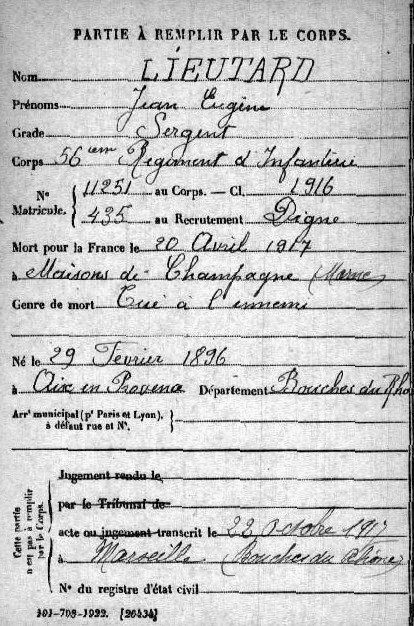 PARTIE À REMPLIR PAR LE CORPS.
Nom LIEUTARD
Prénoms Jean Eugène
Grade Sergent
Corps 56em Régiment d'Infanterie
N° Matricule. { 11251 au Corps. — Cl. 1916
435 au Recrutement Digne
Mort pour la France le 20 Avril 1917
à Maisons de Champagne (Marne)
Genre de mort Tué à l'ennemi
Né le 29 Février 1896
à Aix en Provence Département Bouches du Rho
Arrt municipal (pr Paris et Lyon), à défaut rue et N°. }
Cette partie n'est pas à remplir par le Corps. {
Jugement rendu le
par le Tribunal de
acte ou jugement transcrit le 22 Octobre 1917
à Marseille (Bouches du Rhône)
N° du registre d'état civil
101-708-1922. [26434]